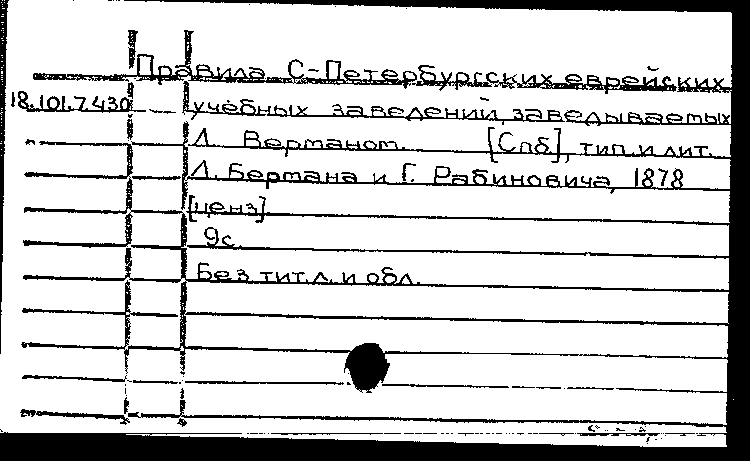 Правила С-Петербургских еврейских
18.101.7.430 учебных заведений, заведываемых
Л. Берманом. [Спб], тип. и лит.
Л. Бермана и Г. Рабиновича, 1878
[ценз]
9с.
Без тит. л. и обл.